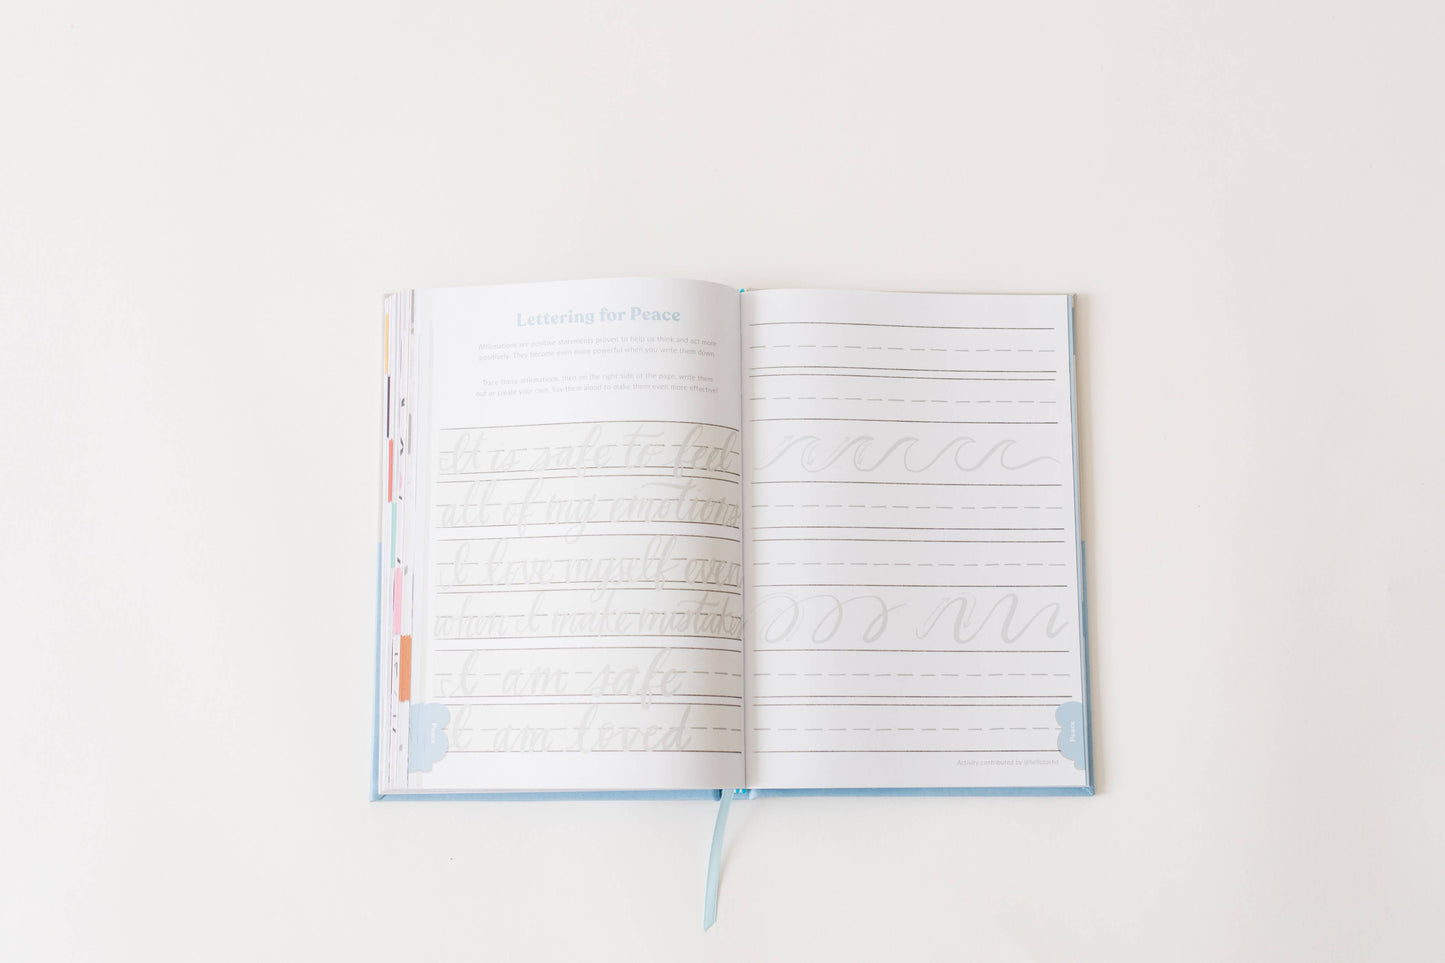 Lettering for Peace
Affirmations are positive statements proven to help us think and act more
positively. They become even more powerful when you write them down.
Trace these affirmations, then on the right side of the page, write them
out or create your own. Say them aloud to make them even more effective!
It is safe to feel
all of my emotions
I love myself even
when I make mistakes
I am safe
I am loved
Peace
Peace
Activity contributed by @hellotosha